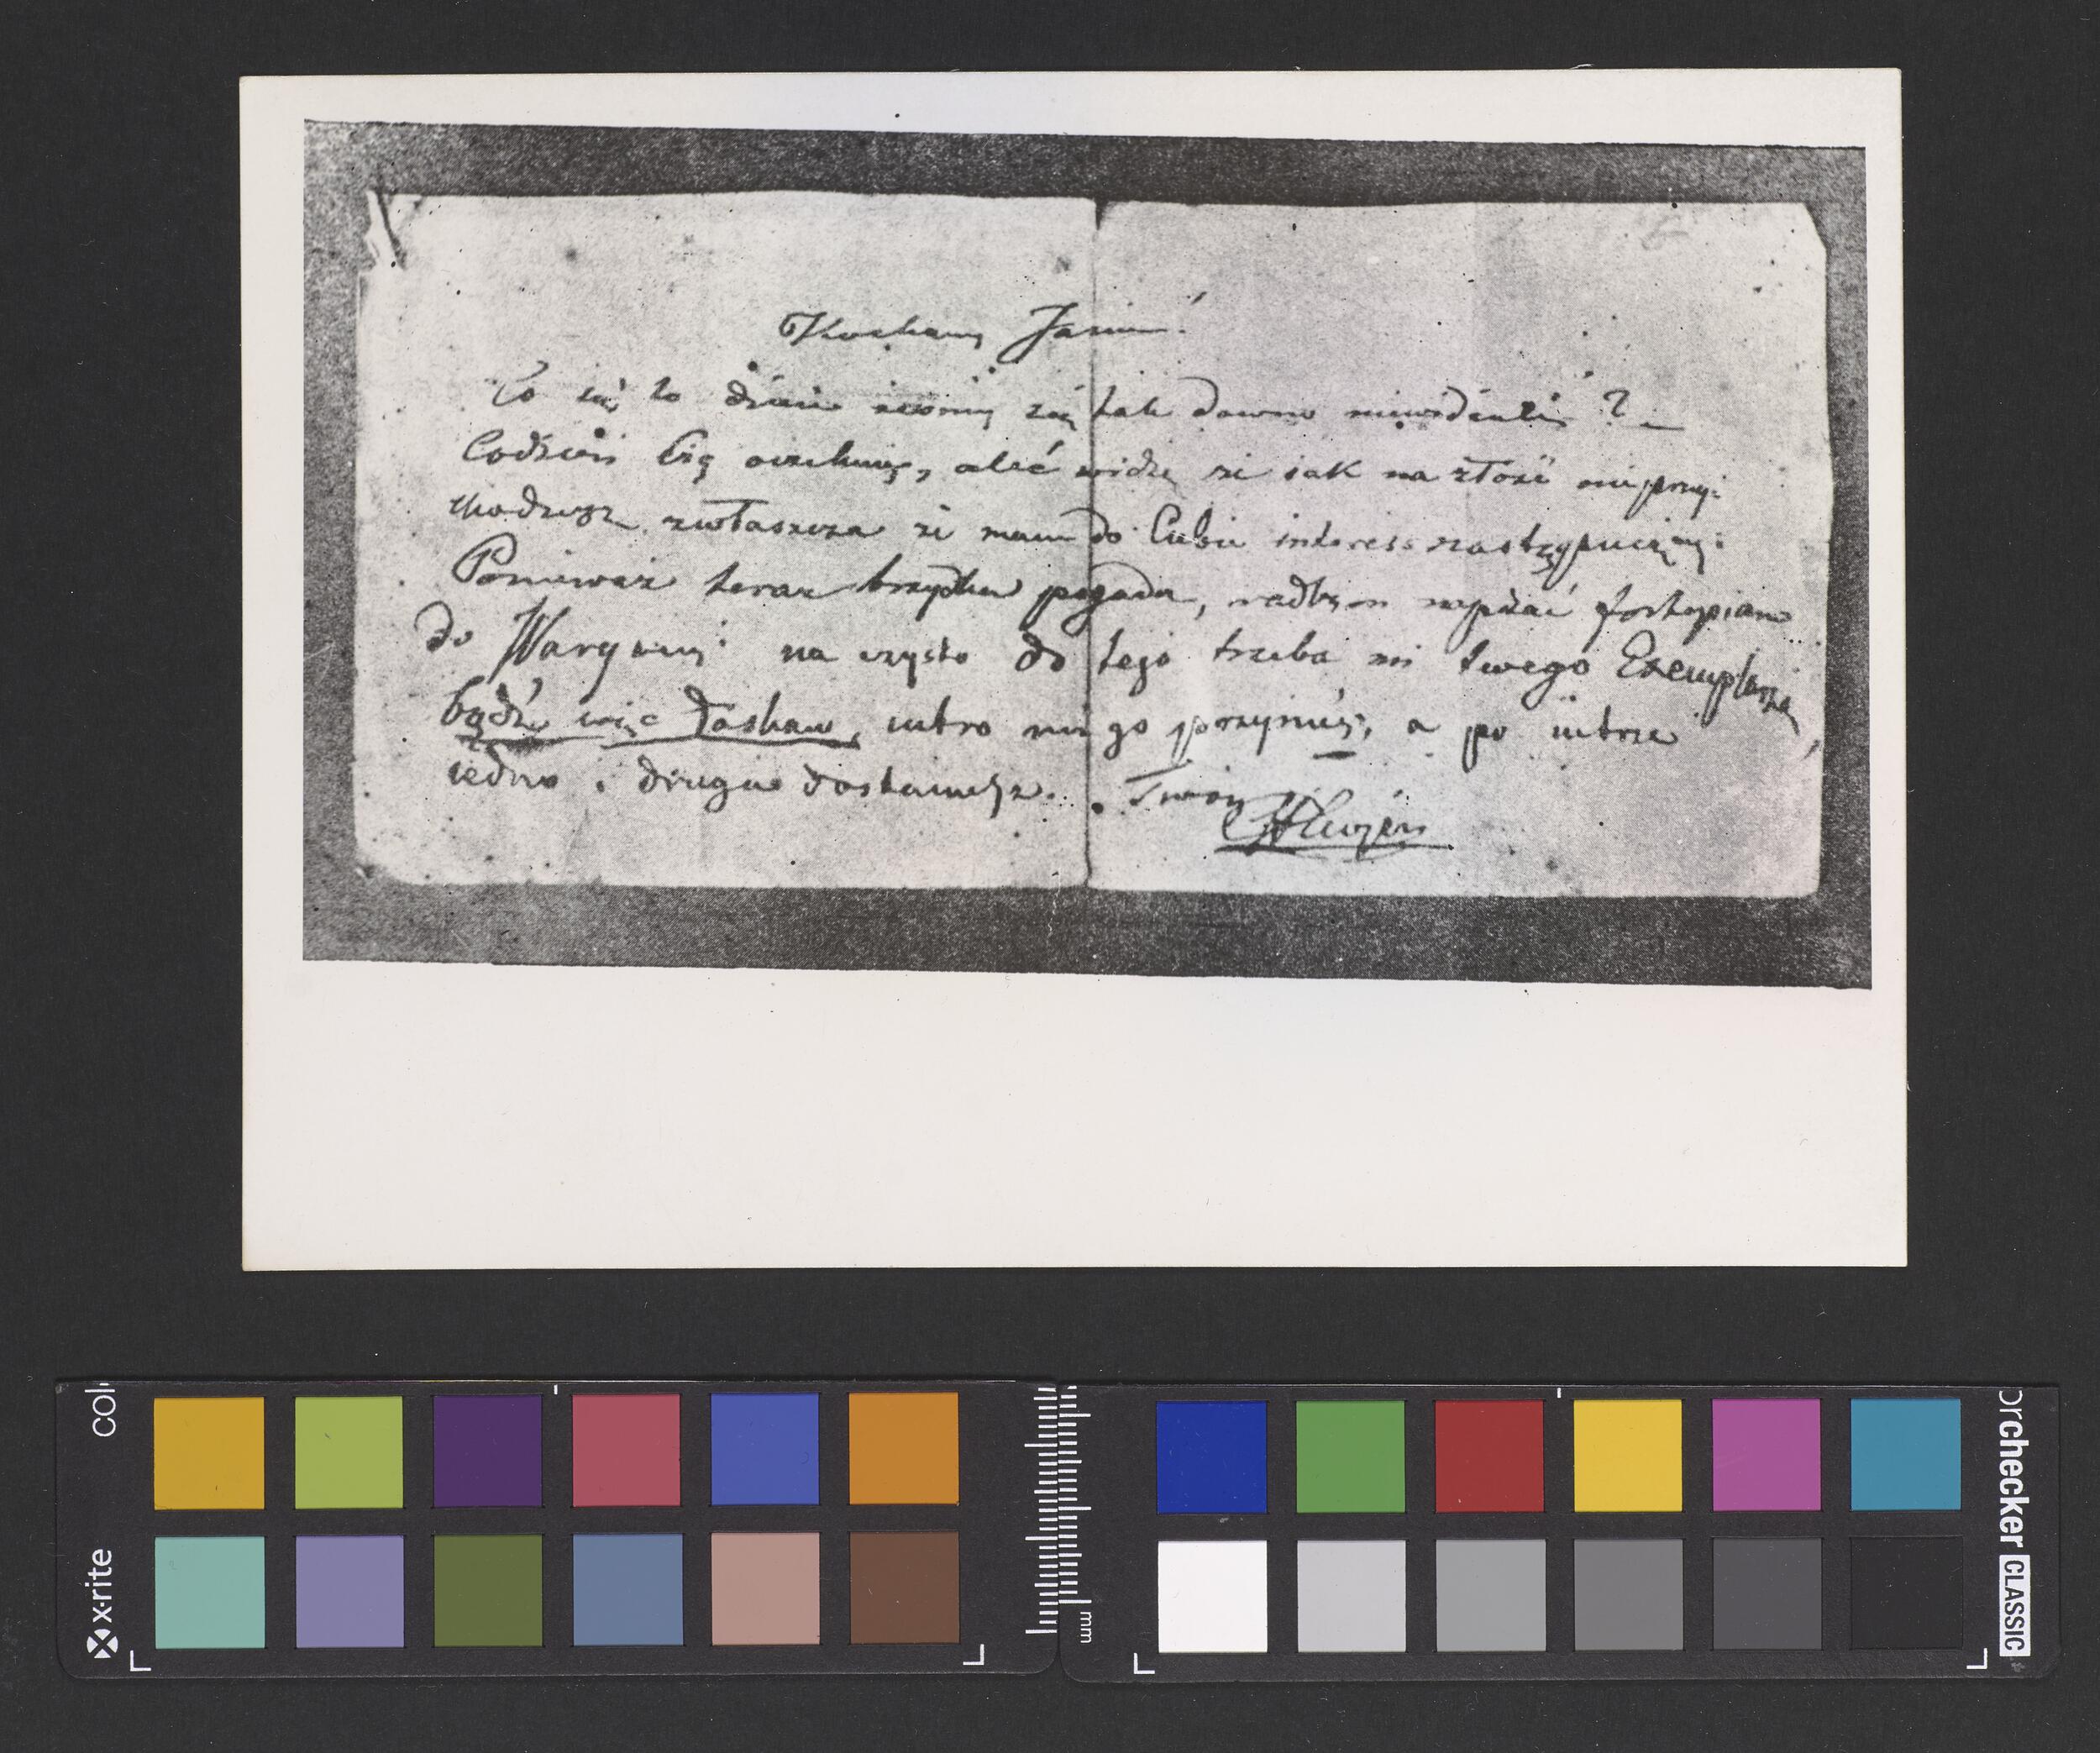 Kochany Jasiu!
Co się to dzieie iżeśmy się tak dawno niewidzieli? –
Codzień Cię oczekuię, aleć widzę że iak na złość nieprzy:
chodzisz zwłaszcza że mam do Ciebie interess następuiący:
Ponieważ teraz brzydka pogoda, radbym napisać fortepian
do Waryacyi na czysto do tego trzeba mi twego Exemplarza,
bądź więc łaskaw, iutro mi go przynieś, a po iutrze
iedno i drugie dostaniesz. Twóy
FFChopin
x·rite
col
orchecker CLASSIC
mm